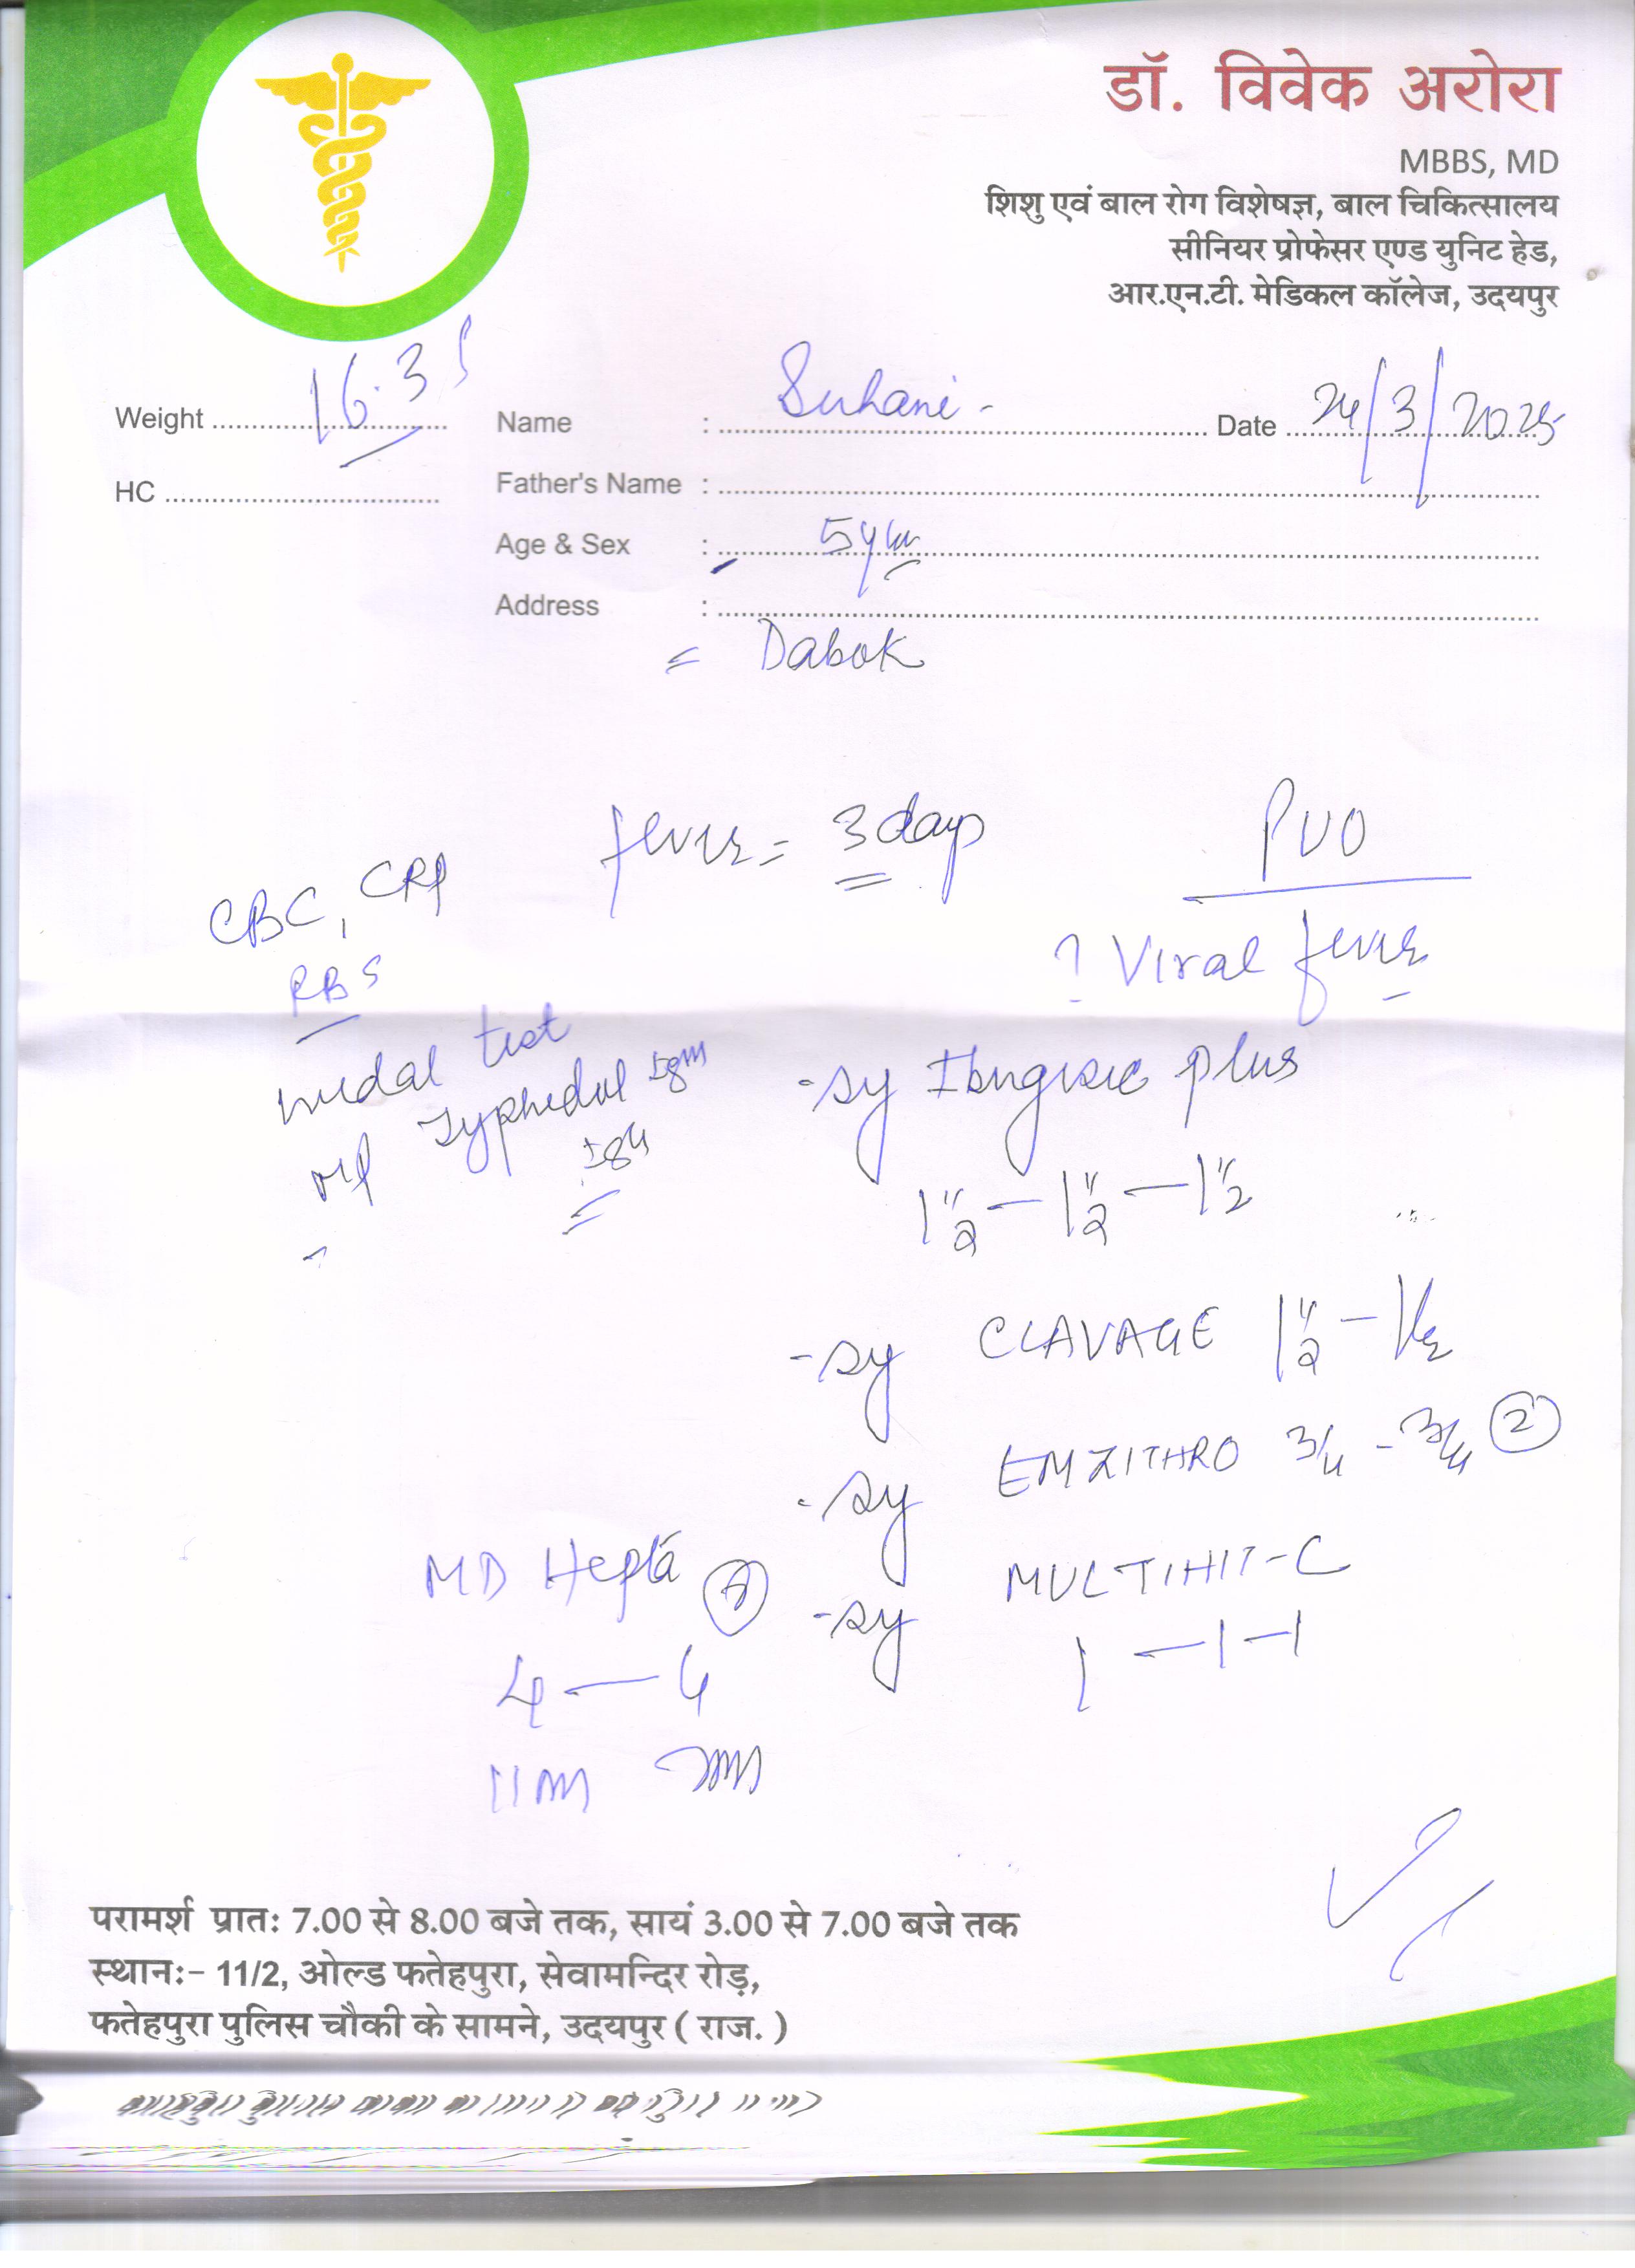 डॉ. विवेक अरोरा
MBBS, MD
शिशु एवं बाल रोग विशेषज्ञ, बाल चिकित्सालय
सीनियर प्रोफेसर एण्ड युनिट हेड,
आर.एन.टी. मेडिकल कॉलेज, उदयपुर
Weight 16.35
Name : Suhani Date 24/3/2025
HC
Father's Name :
Age & Sex : 5 yrs
Address :
= Dabok
fever = 3 days
PUO
CBC, CRP
? Viral fever
RBS
widal test
Typhidot IgM
IgG
MP
- Sy Ibugesic plus
1 1/2 — 1 1/2 — 1 1/2
- Sy CLAVAGE 1 1/2 — 1 1/2
- Sy EMZITHRO 3/4 - 3/4 (2)
- Sy MULTIHIT-C
1 — 1 — 1
MD Hepta
4 — 4
परामर्श प्रातः 7.00 से 8.00 बजे तक, सायं 3.00 से 7.00 बजे तक
स्थानः- 11/2, ओल्ड फतेहपुरा, सेवामन्दिर रोड़,
फतेहपुरा पुलिस चौकी के सामने, उदयपुर ( राज. )